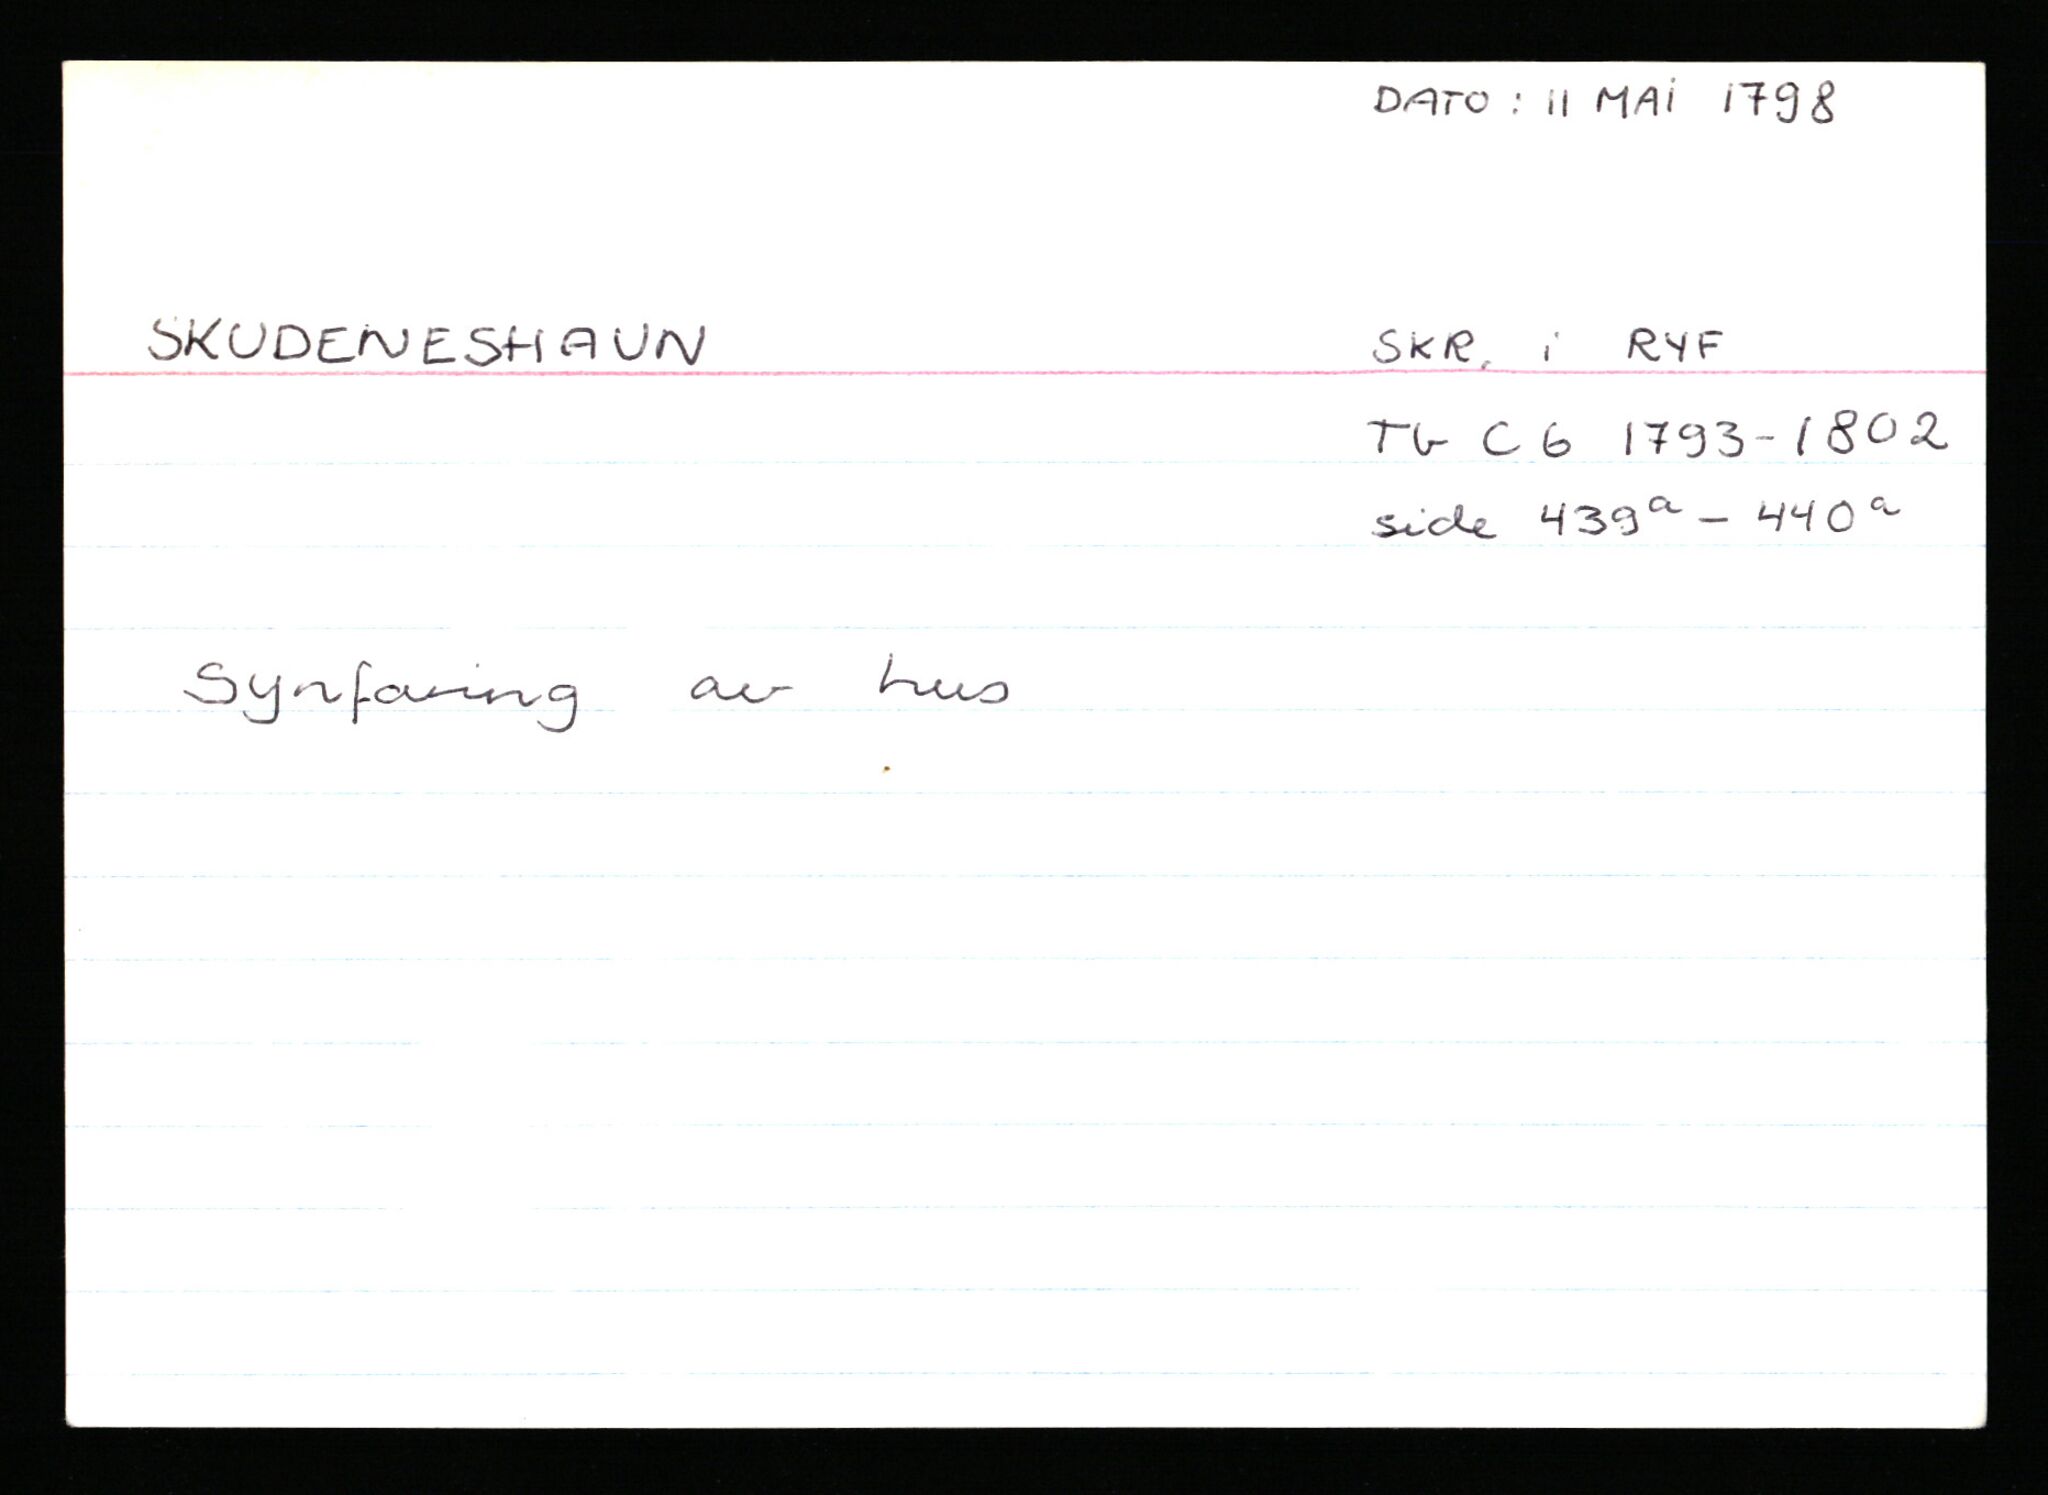 DATO : 11 MAI 1798
SKUDENESHAUN
SKR. i RYF
Tb C 6 1793-1802
side 439a - 440a
Synfaring av hus